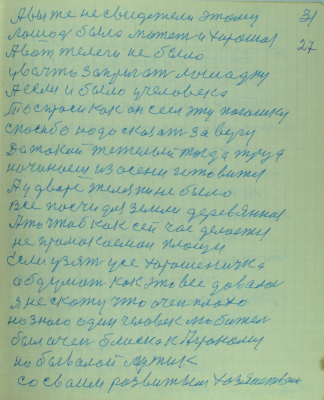 Авы те не свидетели этому 31
лошод была можот и хорошая 27
А вот телеги не было
цвачто запригат лошадку
А если и было учеловека
То спроси как он сеел эту погошку
спосибо надо сказат за веру
Да токай тежелый тогда труд
начинали из осени готовитца
А у дворе телеги не было
все посуда земли деревянная
Ато чтоб как сей час делоеты
не промокаемой площи
Если узят усе хорошеничка
абдумат как это все довалос
я не скожу что очен плохо
но зного один человек любител
был очен блиска к Аграному
на бывалой мужик
со сваим развитыем хозяством